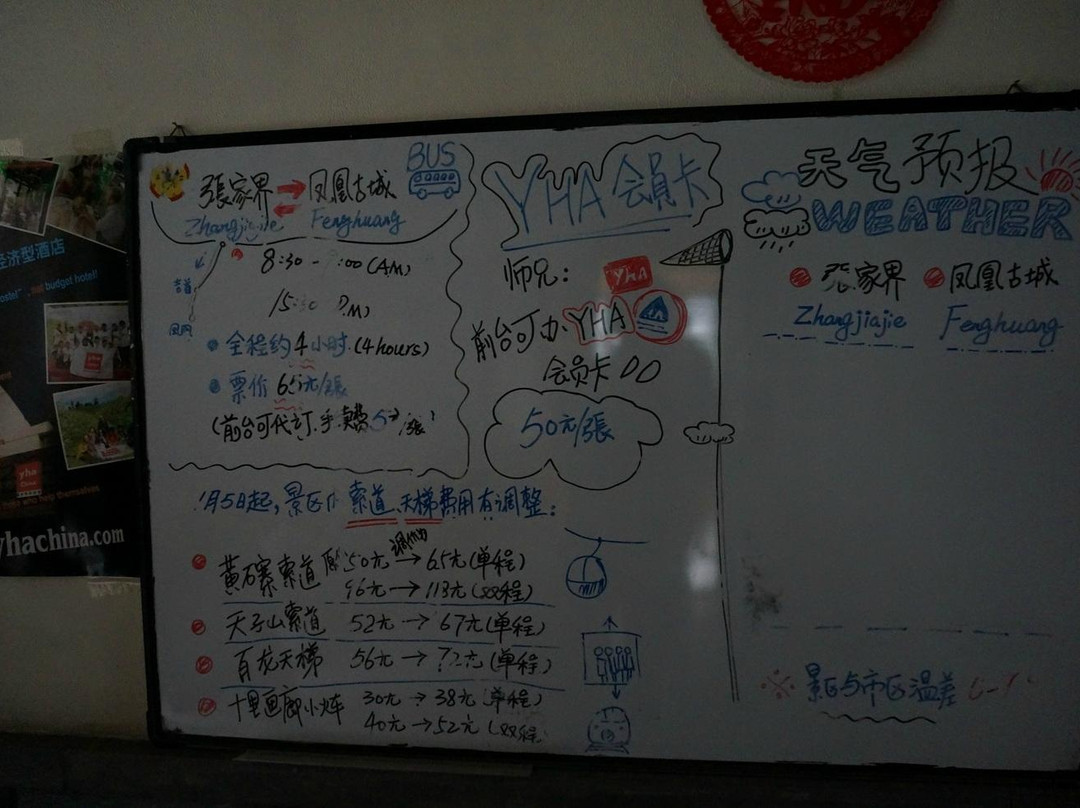 BUS
張家界 → 凤凰古城
Zhangjiajie Fenghuang
8:30 - :00 (AM)
全程约4小时. (4 hours)
票价 65元/張
(前台可代订.手 費 /張)
YHA 会員卡
师兄:
YHA
前台可办YHA
会员卡
50元/張
天气预报
WEATHER
張家界 凤凰古城
Zhangjiajie Fenghuang
景区与市区温差
月5日起,景区 索道、天梯费用有调整:
黄石寨索道 50元 → 65元(单程)
96元 → 113元(双程)
天子山索道 52元 → 67元(单程)
百龙天梯 56元 → 72元(单程)
十里画廊小火车 30元 → 38元(单程)
40元 → 52元(双程)
经济型酒店
budget hotel!
yha
yhachina.com